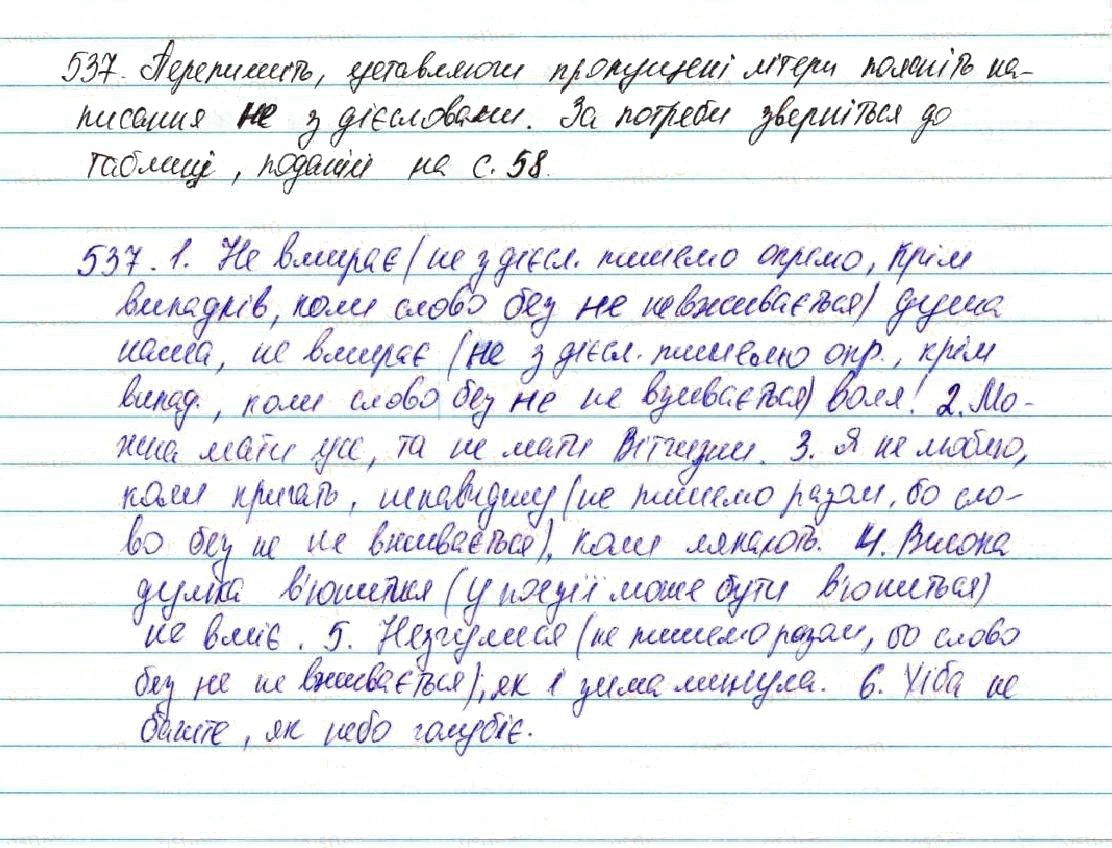 537. Перепишіть, уставляючи пропущені літери поясніть на-
писання не з дієсловами. За потреби зверніться до
таблиці, поданій на с. 58.
537. 1. Не вмирає (не з дієсл. пишемо окремо, крім
випадків, коли слово без не невживається) душа
наша, не вмирає (не з дієсл. пишемо окр., крім
випад., коли слово без не не вживається) воля! 2. Мо-
жна мати усе, та не мати Вітчизни. 3. Я не люблю,
коли кричать, ненавиджу (не пишемо разом, бо сло-
во без не не вживається), коли ляпають. 4. Висока
думка в'юниться (у поезії може бути в'юниться)
не вміє. 5. Незчулися (не пишемо разом, бо слово
без не не вживається), як і зима минула. 6. Хіба не
бачите, як небо голубіє.